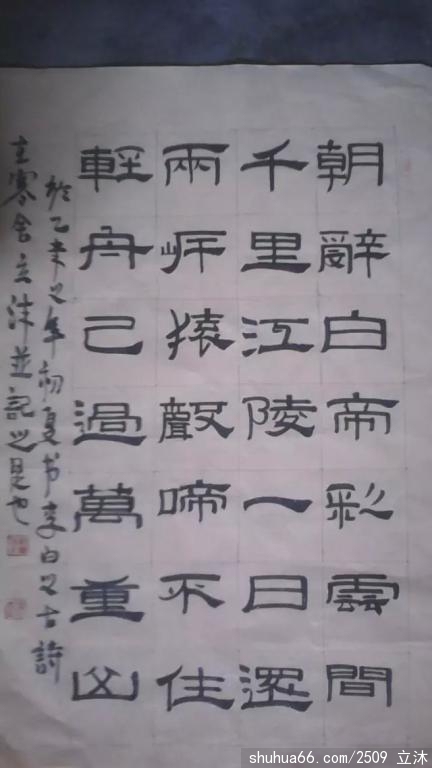 朝辭白帝彩雲間
千里江陵一日還
兩岸猿聲啼不住
輕舟己過萬重山
於乙未之年初夏书李白之古詩
在寒舍立沐並記之是也
shuhua66.com/2509 立沐